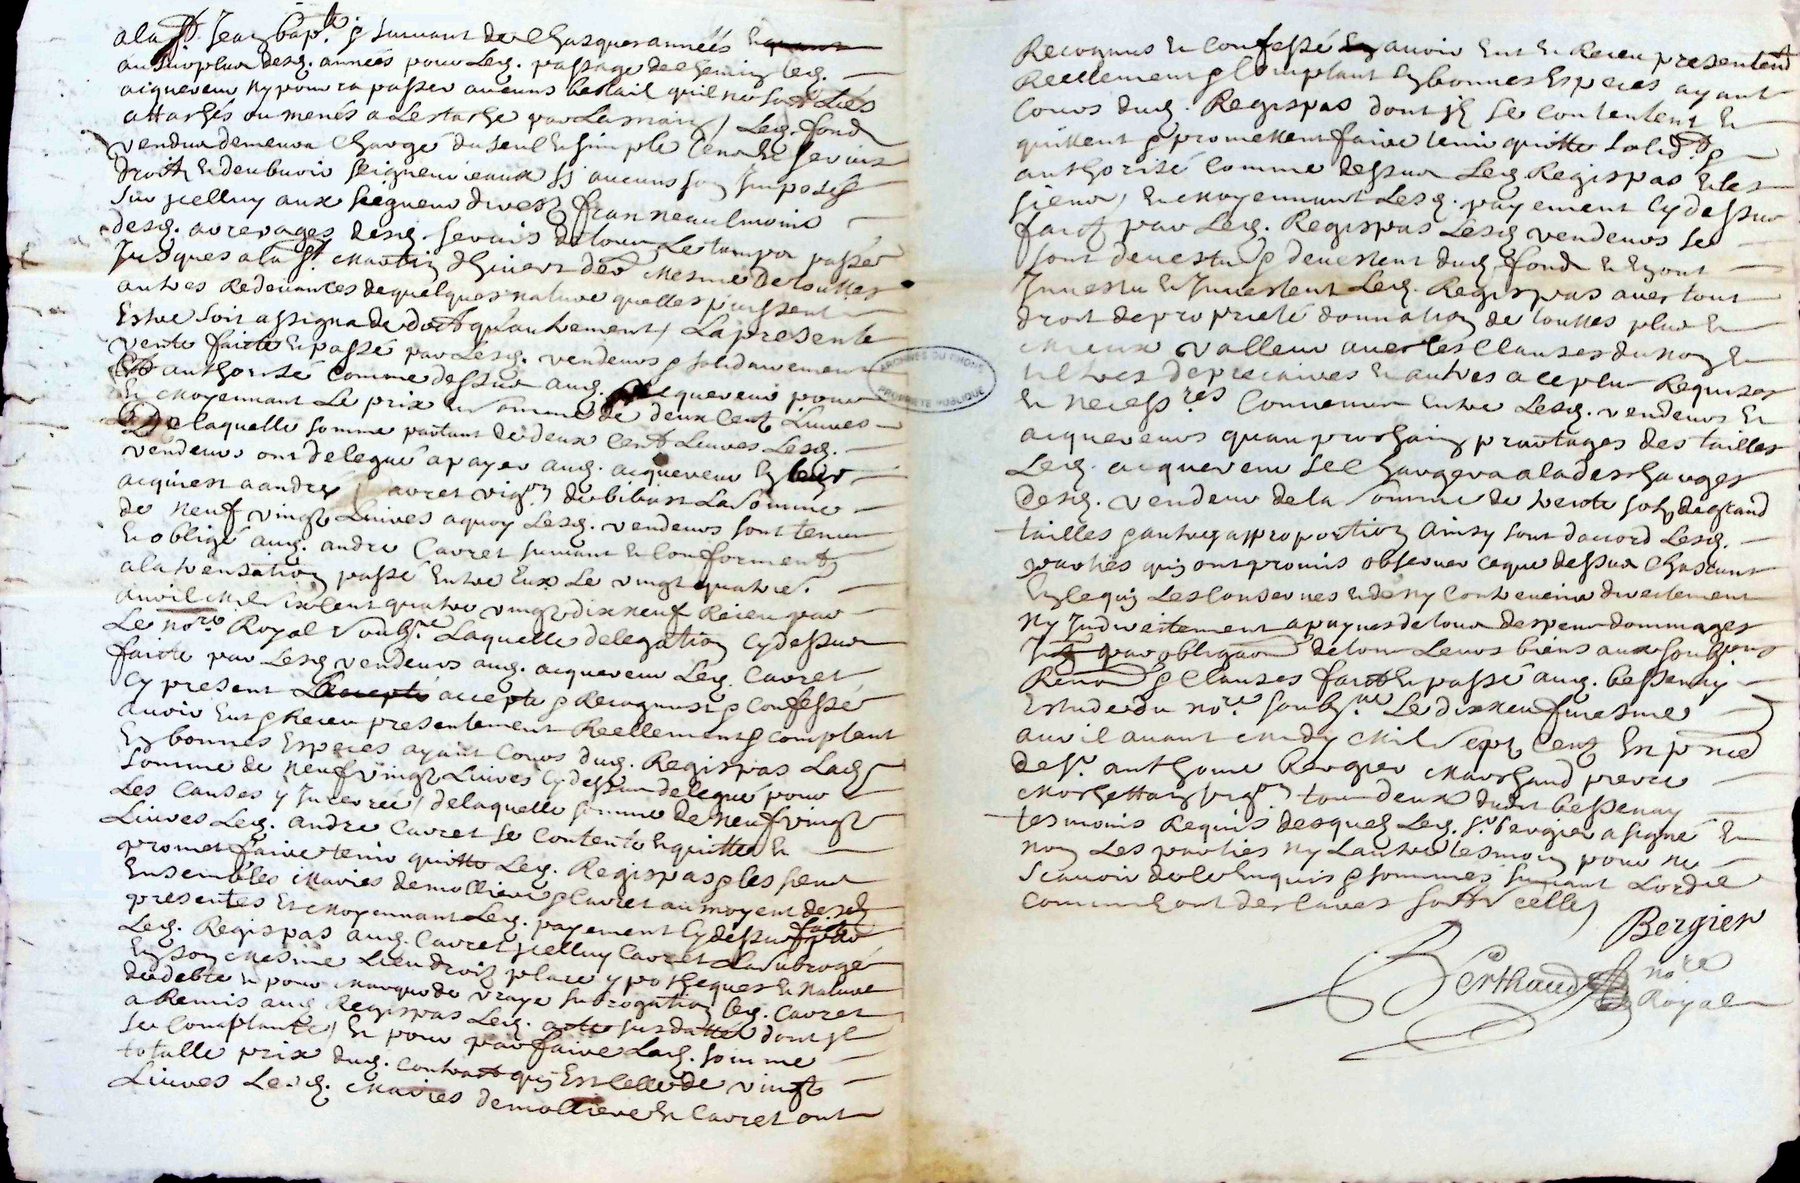 a la St Jean bap.te & suivant de Chasques années Et
au surplus desd. années pour Led. passage de chemin led.
acquereur ny pourra passer aucuns bestail quil ne soit Liés
attaschés ou menés a Lestasche par La main / Led. fond
vendu demeura Chargé du seul Et simple Cens Et servis
droitz Et debvoirs seigneuriaux sy aucuns son Imposés
sur jcelluy aux seigneur divers franc neaulmoins
desd. arrerages desd. servis de tout Le temps passé
Jusques a la St Martin dhivert der.er Mesme De touttes
autres Redevances de quelques nature quelles puissent
Estre soit assignade doct quautrement / La presente
vente faicte Et passé par Lesd. vendeurs & solidairement
authorisé Comme dessus aud. acquereur pour
Et Moyennant Le prix Et somme de deux Cent Livres
De laquelle somme partant de deux Cent Livres Lesd.
vendeurs ont delegué a payer aud. acquereur En
acquiest a andre Cavret vig.on du bibost La somme
de neuf vingt Livres a quoy Lesd. vendeurs sont tenu
Et obligé aud. andre Cavret suivant Et Conformement
a la transation passé Entre Eux Le vingt quatre
avril Mil six Cent quatre vingt dix neuf Receu par
Le no.re Royal soubs.né Laquelle delegation Cy dessus
faicte par Lesd. vendeurs aud. acquereur Led. Cavret
Cy present accepte & Recognust & Confessé
avoir Eut & Receu presentement Reellement & Comptent
En bonnes Especes ayant Cours dud. Regispas Lad.
somme de neuf vingt Livres Cy dessus delegué pour
Les Causes y Inserrée / de laquelle somme de neuf vingt
Livres Led. andre Cavret se Contente Et quitte Et
promet faire tenir quitte Led. Regispas & les siens
Ensembles Mariés demolliere & Cavret au moyent desd.
presentes Et Moyennant Led. payement Cy dessus fait par
Led. Regispas aud. Cavret jcelluy Cavret La subrogé
En son Mesme Lieu droit place ypotheques Et Nature
de debte Et pour Marque de vraye subrogation led. Cavret
a Remis aud. Regispas Led. acte sus datté dont jl
se Comptante / Et pour parfaire Lad. somme
totalle prix dud. Contract qui Est Celle de vingt
Livres Lesd. Mariés demolliere Et Cavret ont
Recognus Et Confessé avoir Eut Et Receu presentent
Reellement & Comptant En bonnes Especes ayant
Cours dud. Regispas dont jls se Contentent Et
quittent & promettent faire tenir quitte solid.t &
authorisé Comme dessus Led. Regispas Et les
siens / Et Moyennant Lesd. payement Cy dessus
faict par Led. Regispas Lesd. vendeurs se
sont devestu & devestent dud. fond Et En ont
Investu Et Investent Led. Regispas avec tout
droit de proprieté donnation de touttes plus Et
Mieux valleur avec les Clauses du nom Et
tiltres de precaires Et autres a ce plus Requises
Et necess.res Convenu Entre Lesd. vendeurs Et
acquereurs quau prochain partages des tailles
Led. acquereur se Chargera a la descharges
desd. vendeur de la somme de trente sols de grand
tailles & autres a proportion ainsy sont daccord Lesd.
parties qui ont promis observer ce que dessus Chascuns
En ce qui Les Conserves Et de ny Contrevenir directement
ny Indirectement a paynes de tous despens dommages
par obligaon de tous Leurs biens aux soubmons
Renoons & Clauses faict Et passé aud. bessenay
Estude du no.re soubs.né Le dix neufviesme
avril avant Midy Mil sept Cent En pnce
de s.r anthoine Bergier Marchand
Mochettan vig.on tous deux dudit bessenay
tesmoins Requis desquels Led. s.r bergier a signé Et
non Les parties ny Lautre tesmoin pour ne
scavoir de ce Enquis & sommés suivant Lordre
Comme sont declares soub Celle
Bergier
Berthaud no.re
Royal
ARCHIVES DU RHONE
PROPRIETE PUBLIQUE